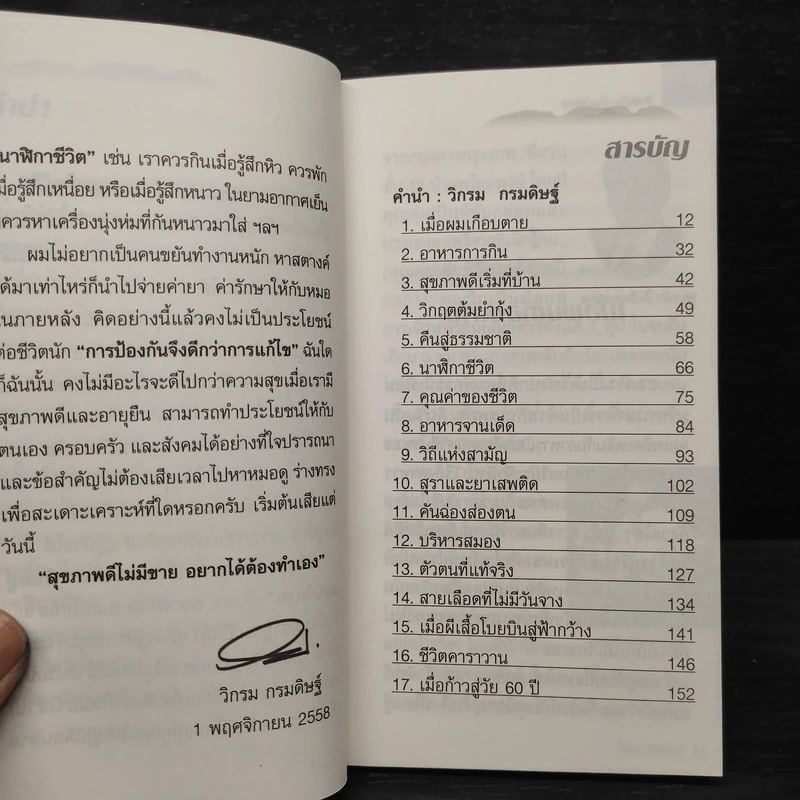 นาฬิกาชีวิต” เช่น เราควรกินเมื่อรู้สึกหิว ควรพัก
มื่อรู้สึกเหนื่อย หรือเมื่อรู้สึกหนาว ในยามอากาศเย็น
ควรหาเครื่องนุ่งห่มที่กันหนาวมาใส่ ฯลฯ
ผมไม่อยากเป็นคนขยันทำงานหนัก หาสตางค์
ด้มาเท่าไหร่ก็นำไปจ่ายค่ายา ค่ารักษาให้กับหมอ
นภายหลัง คิดอย่างนี้แล้วคงไม่เป็นประโยชน์
ต่อชีวิตนัก “การป้องกันจึงดีกว่าการแก้ไข” ฉันใด
ก็ฉันนั้น คงไม่มีอะไรจะดีไปกว่าความสุขเมื่อเรามี
สุขภาพดีและอายุยืน สามารถทำประโยชน์ให้กับ
ตนเอง ครอบครัว และสังคมได้อย่างที่ใจปรารถนา
และข้อสำคัญไม่ต้องเสียเวลาไปหาหมอดู ร่างทรง
เพื่อสะเดาะเคราะห์ที่ใดหรอกครับ เริ่มต้นเสียแต่
วันนี้
“สุขภาพดีไม่มีขาย อยากได้ต้องทำเอง”
วิกรม กรมดิษฐ์
1 พฤศจิกายน 2558
สารบัญ
คำนำ : วิกรม กรมดิษฐ์
1. เมื่อผมเกือบตาย 12
2. อาหารการกิน 32
3. สุขภาพดีเริ่มที่บ้าน 42
4. วิกฤตต้มยำกุ้ง 49
5. คืนสู่ธรรมชาติ 58
6. นาฬิกาชีวิต 66
7. คุณค่าของชีวิต 75
8. อาหารจานเด็ด 84
9. วิถีแห่งสามัญ 93
10. สุราและยาเสพติด 102
11. คันฉ่องส่องตน 109
12. บริหารสมอง 118
13. ตัวตนที่แท้จริง 127
14. สายเลือดที่ไม่มีวันจาง 134
15. เมื่อผีเสื้อโบยบินสู่ฟ้ากว้าง 141
16. ชีวิตคาราวาน 146
17. เมื่อก้าวสู่วัย 60 ปี 152